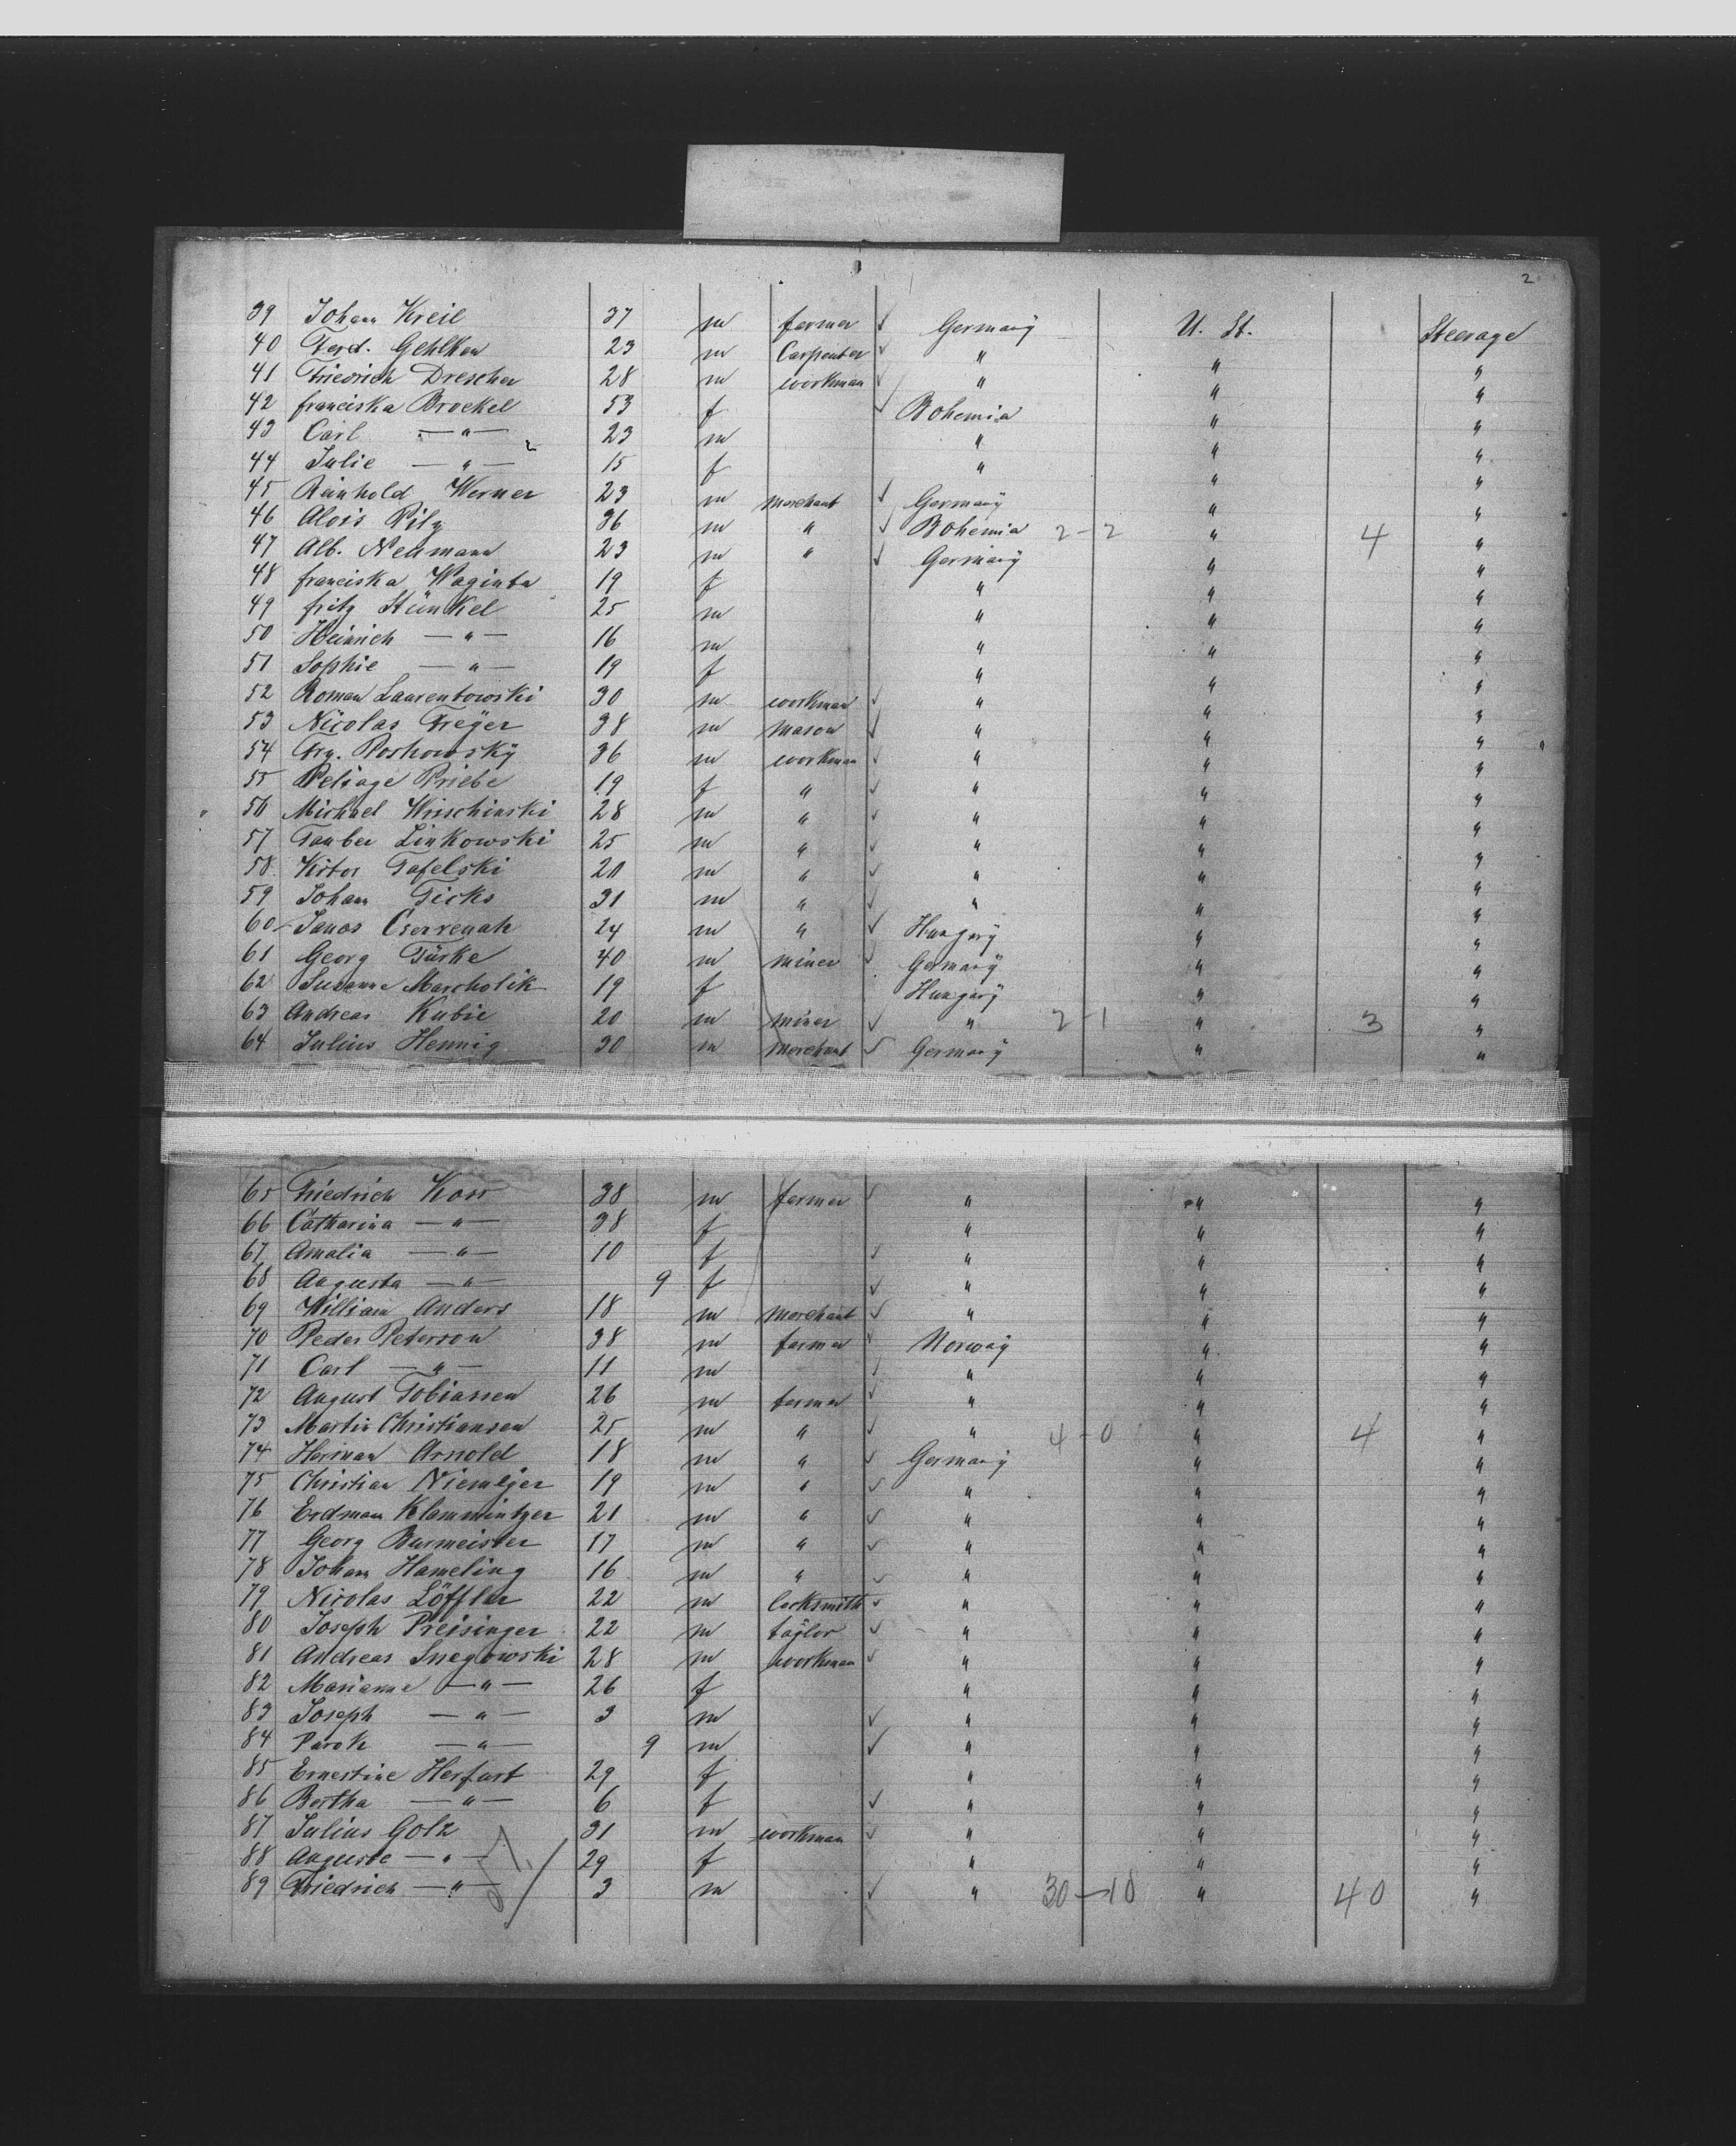 2
39 Johann Kreil 37 m farmer ✓ Germany U. St. Steerage
40 Ferd. Gehlken 23 m Carpenter ✓ " " "
41 Friedrich Drescher 28 m workman ✓ " " "
42 franciska Brockel 53 f ✓ Bohemia " "
43 Carl —"— 23 m " " "
44 Julie —"— 15 f " " "
45 Reinhold Werner 23 m merchant ✓ Germany " "
46 Alois Pilz 36 m " ✓ Bohemia 2-2 " 4 "
47 Alb. Neumann 23 m " ✓ Germany " "
48 franciska Waginta 19 f " " "
49 fritz Stünkel 25 m " " "
50 Heinrich —"— 16 m " " "
51 Sophie —"— 19 f " " "
52 Roman Laurentowski 30 m workman ✓ " " "
53 Nicolas Freÿer 38 m mason ✓ " " "
54 Frz. Roshowskÿ 36 m workman ✓ " " "
55 Pelsage Priebe 19 f " ✓ " " "
56 Michael Wrischinski 28 m " ✓ " " "
57 Tauber Linkowski 25 m " ✓ " " "
58 Victor Tafelski 20 m " ✓ " " "
59 Johann Ticks 31 m " ✓ " " "
60 Janos 24 m " ✓ Hungary " "
61 Georg Türke 40 m miner ✓ Germany " "
62 Susanne Marcholik 19 f Hungary " "
63 Andreas Kubic 20 m miner ✓ " 2-1 " 3 "
64 Julius Hennig 30 m merchant ✓ Germany " "
65 Friedrich Koss 38 m farmer ✓ " " "
66 Catharina —"— 38 f " " "
67 Amalia —"— 10 f ✓ " " "
68 Augusta —"— 9 f ✓ " " "
69 William Anders 18 m merchant ✓ " " "
70 Peder Peterson 38 m farmer ✓ Norway " "
71 Carl —"— 11 m ✓ " " "
72 August Tobiassen 26 m farmer ✓ " " "
73 Martin Christiansen 25 m " ✓ " 4-0 " 4 "
74 Herman Arnold 18 m " ✓ Germany " "
75 Christian Niemeÿer 19 m " ✓ " " "
76 Erdman Klammintzer 21 m " ✓ " " "
77 Georg Burmeister 17 m " ✓ " " "
78 Johann Hameling 16 m " ✓ " " "
79 Nicolas Löffler 22 m locksmith ✓ " " "
80 Joseph Preisinger 22 m taÿlor ✓ " " "
81 Andreas Snegowski 28 m workman ✓ " " "
82 Marianne —"— 26 f " " "
83 Joseph —"— 3 m ✓ " " "
84 Parok —"— 9 m ✓ " " "
85 Ernestine Herfurt 29 f " " "
86 Bertha —"— 6 f ✓ " " "
87 Julius Golz 31 m workman ✓ " " "
88 Auguste —"— 29 f " " "
89 Friedrich —"— 3 m ✓ " 30-10 " 40 "